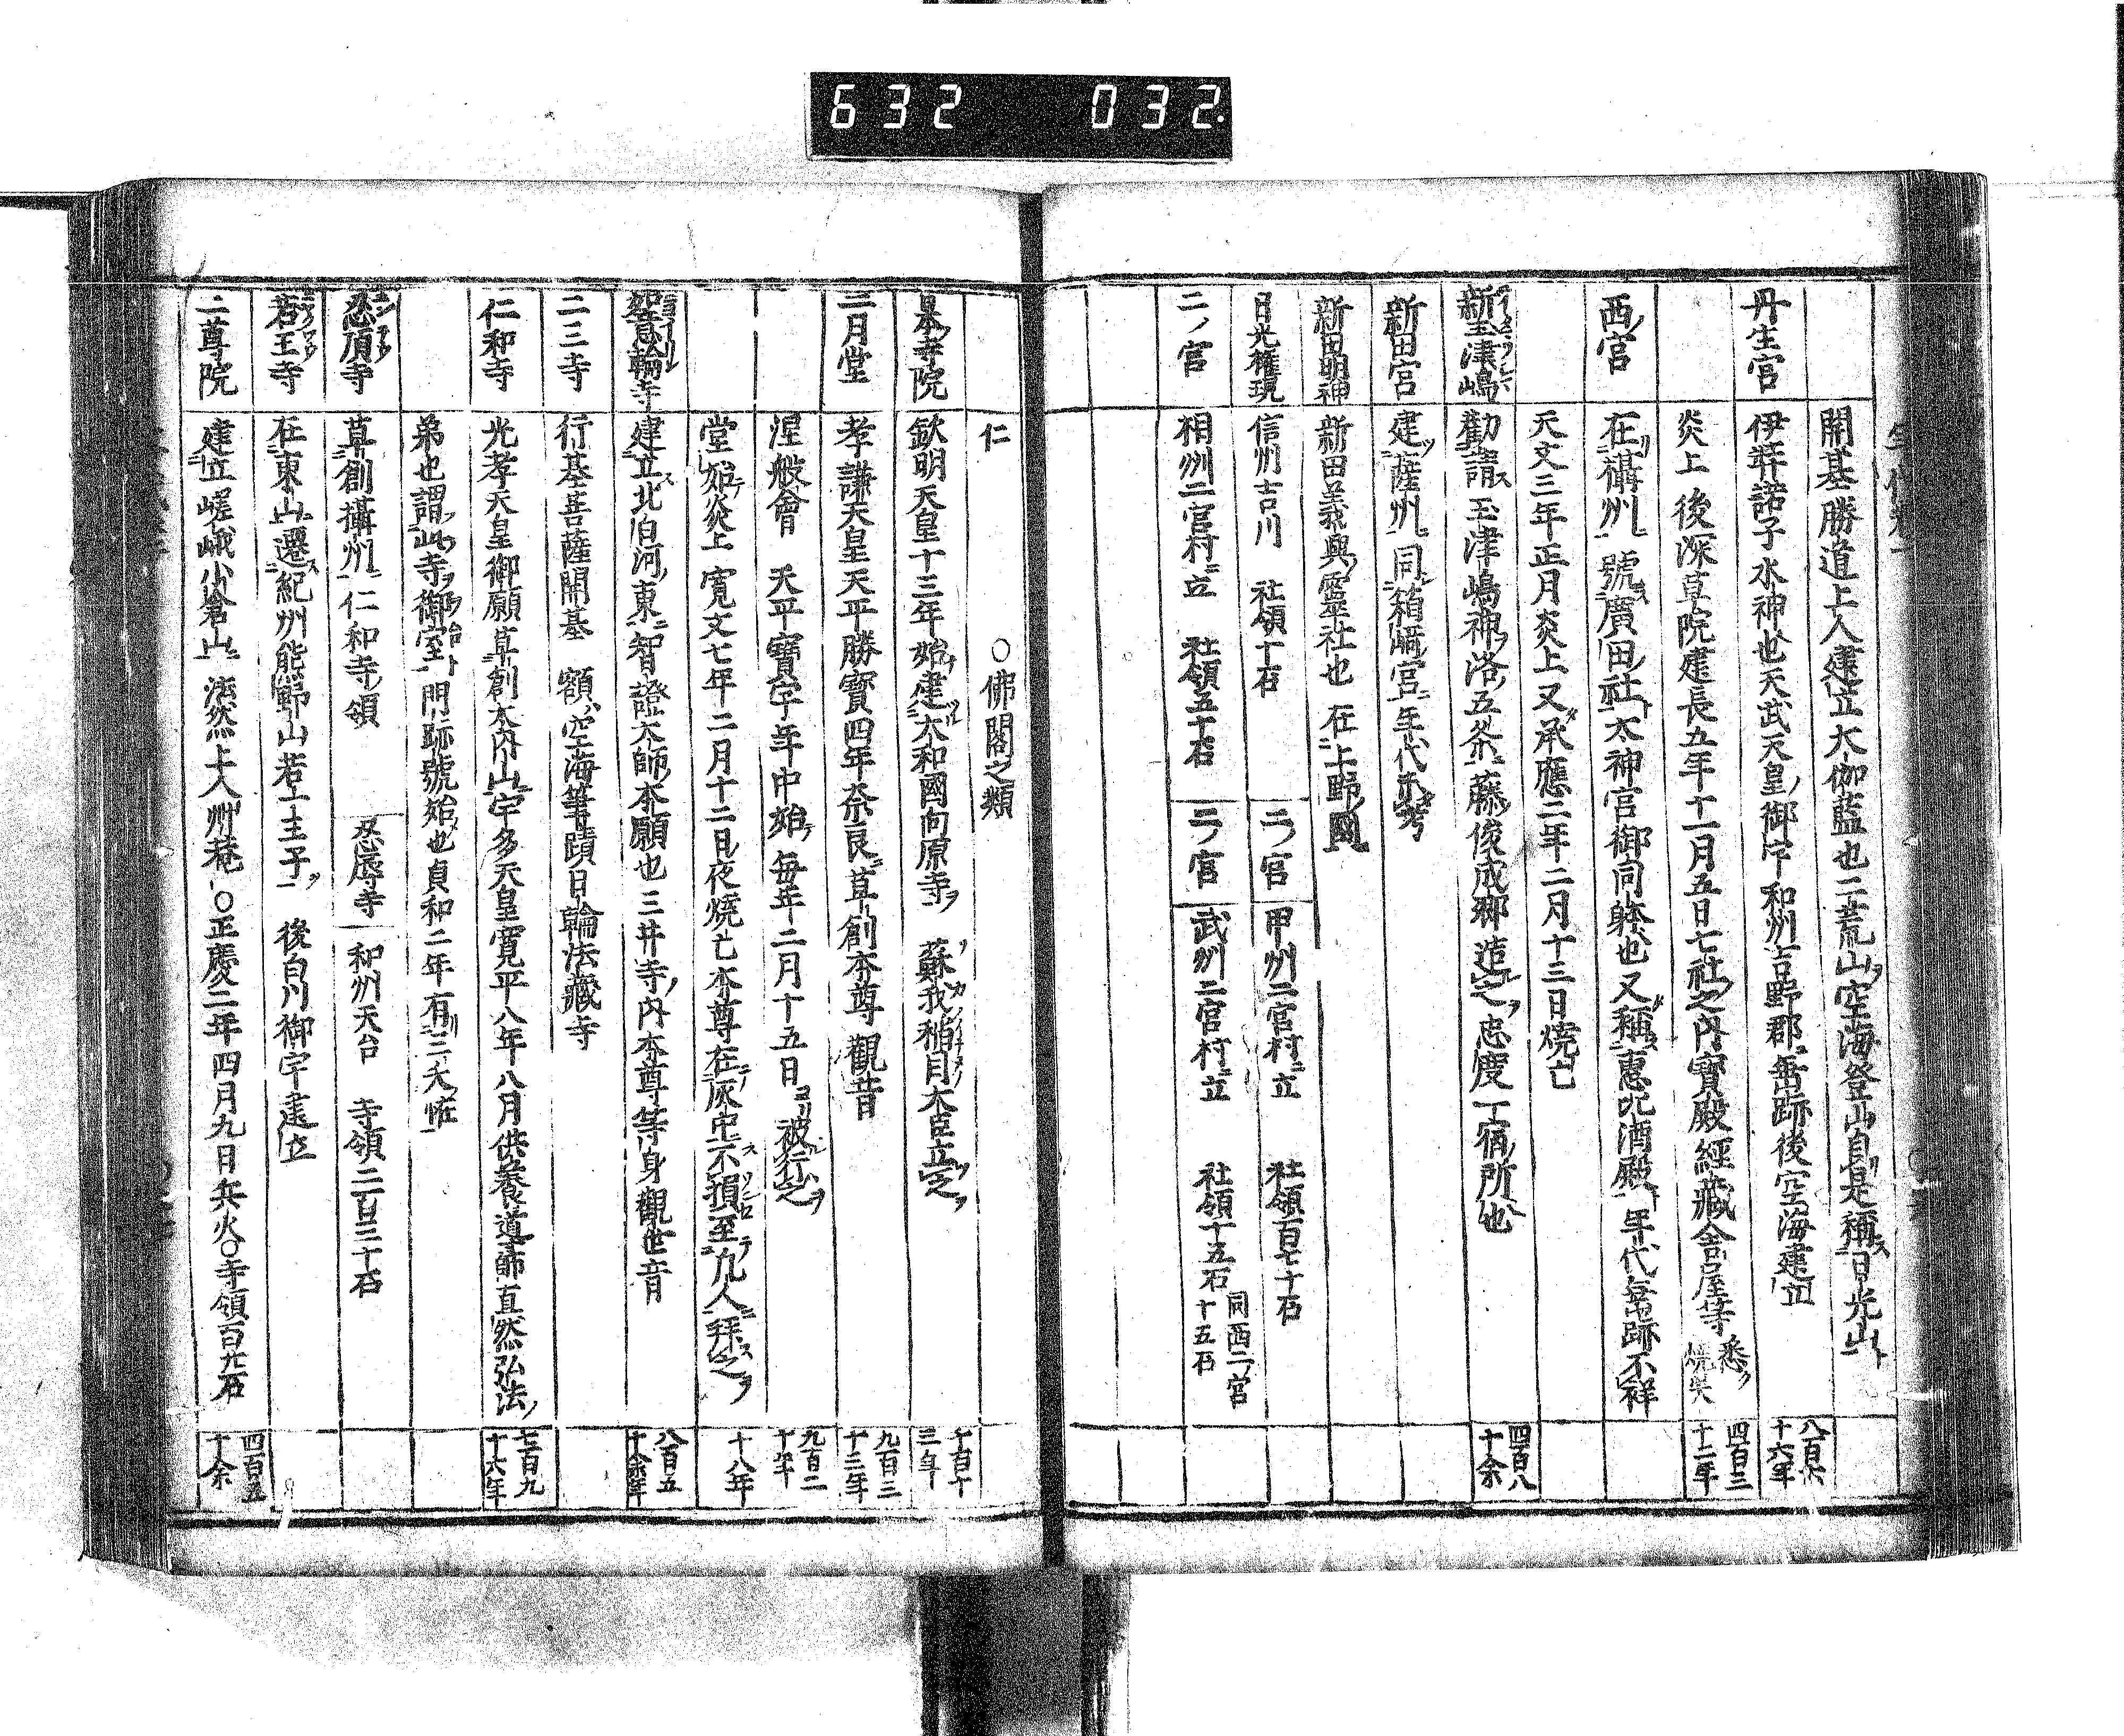 632 032
開基勝道上人建立大伽藍也二荒山ヲ空海登山自是稱ス日光山ト
丹生宮 伊弉諾子水神也天武天皇御宇和州吉野郡ニ垂跡後空海建立 八百六十六年
炎上 後深草院建長五年十一月五日七社之内寶殿經藏舎屋等悉ク燒失 四百三十二年
西ノ宮 在攝州 號廣田社ト太神宮御同躰也又稱惠比酒殿ト 年代垂跡不祥
天文三年正月炎上又承應二年二月十三日燒亡
新玉津嶋 勸請ス玉津嶋神ヲ洛五条ニ藤俊成卿造之ヲ忠度一宿ノ所也 四百八十余
新田宮 建ツ薩州ニ 同箱崎宮ニ年代未考
新田明神 新田義興ノ靈社也 在上野國
日光權現 信州吉川 社領十石 二ノ宮 甲州二宮村ニ立 社領百七十石
二ノ宮 相州二宮村ニ立 社領五十石 二ノ宮 武州二宮村ニ立 社領十五石 同西二ノ宮十五石
仁 ○佛閣之類
日本寺院 欽明天皇十三年始建大和國向原寺ヲ 蘇我稲目大臣立之ヲ 千百十三年
二月堂 孝謙天皇天平勝寶四年奈良ニ草創本尊觀音 九百三十三年
涅般會 天平寶字年中始テ毎年二月十五日ヨリ被行之ヲ 九百二十年
堂始テ炎上 寛文七年二月十二日夜燒亡本尊在灰中ニ不損至凡人ニ拜之ヲ 十八年
如意輪寺 建立ス北白河ノ東ニ智證大師ノ本願也三井寺ノ内本尊等身觀世音 八百五十余年
二三寺 行基菩薩開基 額ハ空海筆蹟日輪法藏寺
仁和寺 光孝天皇御願草創大内山宇多天皇寛平八年八月供養道師真然弘法ノ 七百九十六年
弟也謂此寺ヲ御室ト門跡號始也貞和二年有天怪
忍頂寺 草創攝州ニ仁和寺領 忍辱寺 和州天台 寺領二百三十石
若王寺 在東山ニ遷ス紀州熊野山若王子ヲ 後白川御宇建立
二尊院 建立嵯峨小倉山ニ 法然上人ノ艸菴 ○正慶二年四月九日兵火○寺領百石 四百五十余